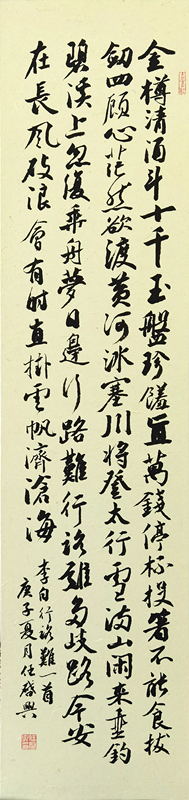 金樽清酒斗十千玉盤珍饈直萬錢停杯投箸不能食拔
劍四顧心茫然欲渡黃河冰塞川將登太行雪滿山閑來垂釣
碧溪上忽復乘舟夢日邊行路難行路難多歧路今安
在長風破浪會有時直掛雲帆濟滄海
李白行路難一首
庚子夏月任啓興